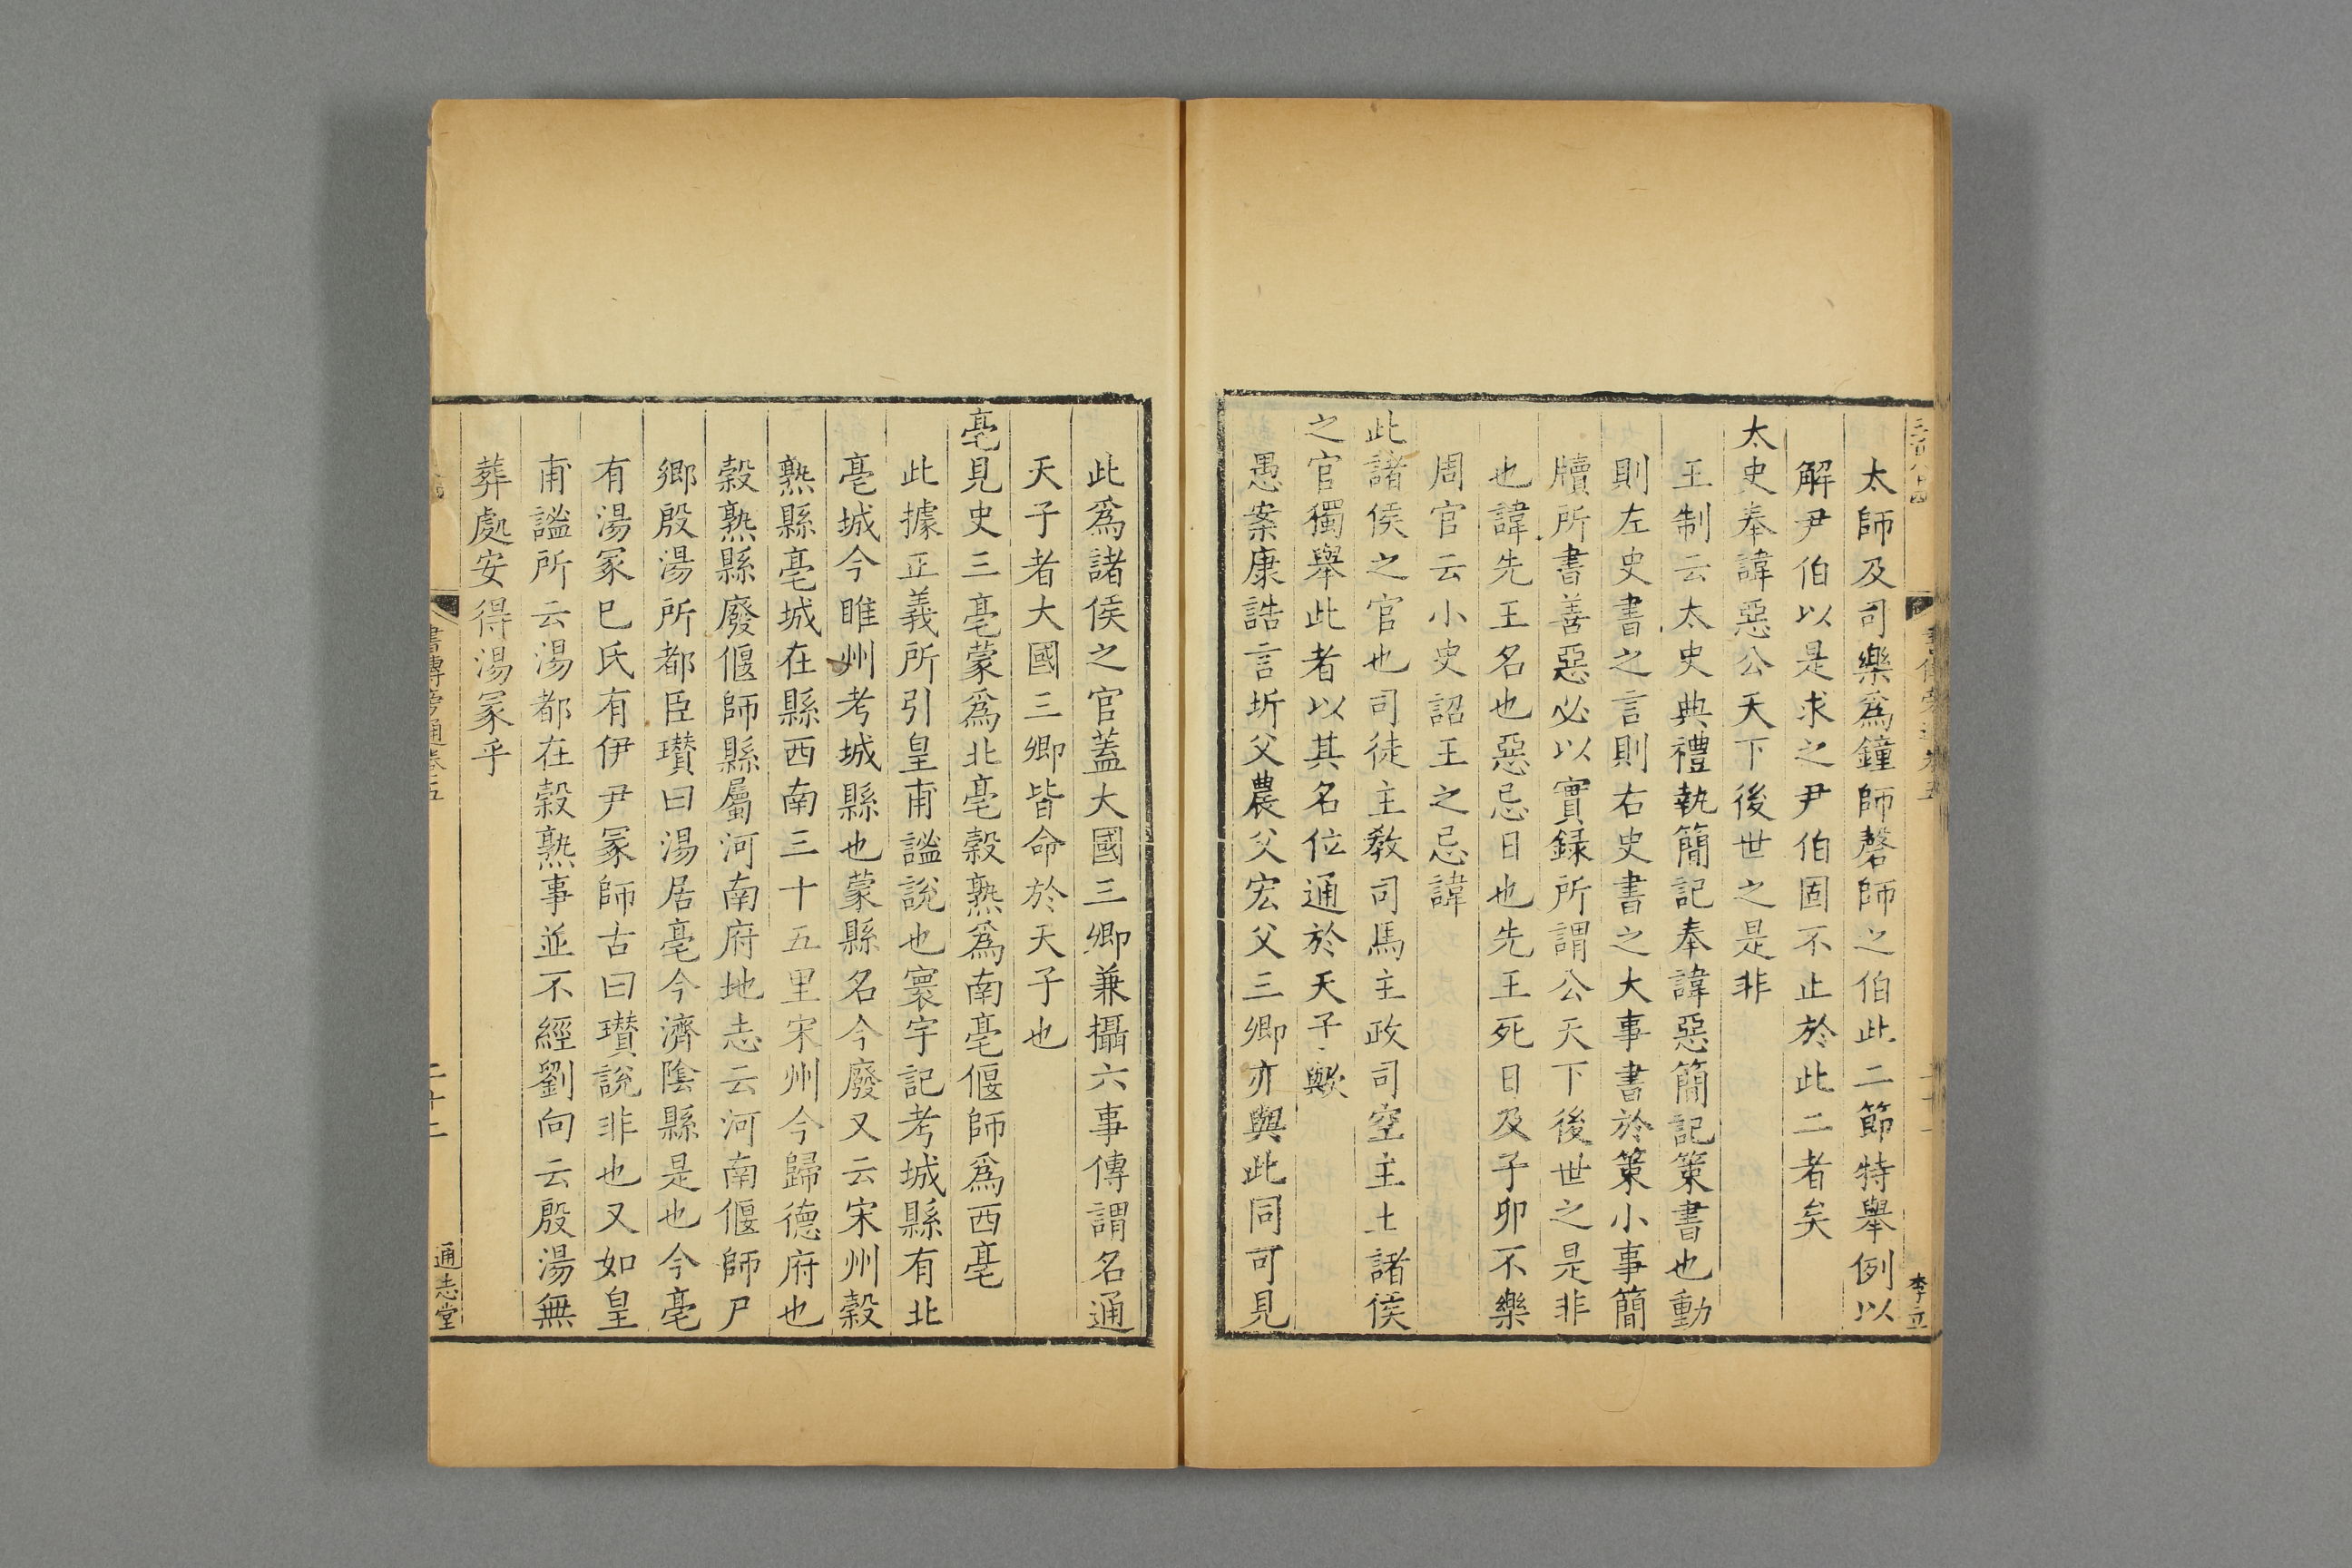 三百八十四
李立
太師及司樂爲鐘師磬師之伯此二節特舉例以
解尹伯以是求之尹伯固不止於此二者矣
太史奉諱惡公天下後世之是非
王制云太史典禮執簡記奉諱惡簡記策書也動
則左史書之言則右史書之大事書於策小事簡
牘所書善惡必以實録所謂公天下後世之是非
也諱先王名也惡忌日也先王死日及子卯不樂
周官云小史詔王之忌諱
此諸侯之官也司徒主教司馬主政司空主土諸侯
之官獨舉此者以其名位通於天子歟
愚案康誥言圻父農父宏父三卿亦與此同可見
此爲諸侯之官蓋大國三卿兼攝六事傳謂名通
天子者大國三卿皆命於天子也
亳見史三亳蒙爲北亳穀熟爲南亳偃師爲西亳
此據正義所引皇甫謐說也寰宇記考城縣有北
亳城今睢州考城縣也蒙縣名今廢又云宋州穀
熟縣亳城在縣西南三十五里宋州今歸德府也
穀熟縣廢偃師縣屬河南府地志云河南偃師尸
鄉殷湯所都臣瓚曰湯居亳今濟陰縣是也今亳
有湯冢巳氏有伊尹冢師古曰瓚說非也又如皇
甫謐所云湯都在穀熟事並不經劉向云殷湯無
葬處安得湯冢乎
書傳旁通卷五
二十二
通志堂